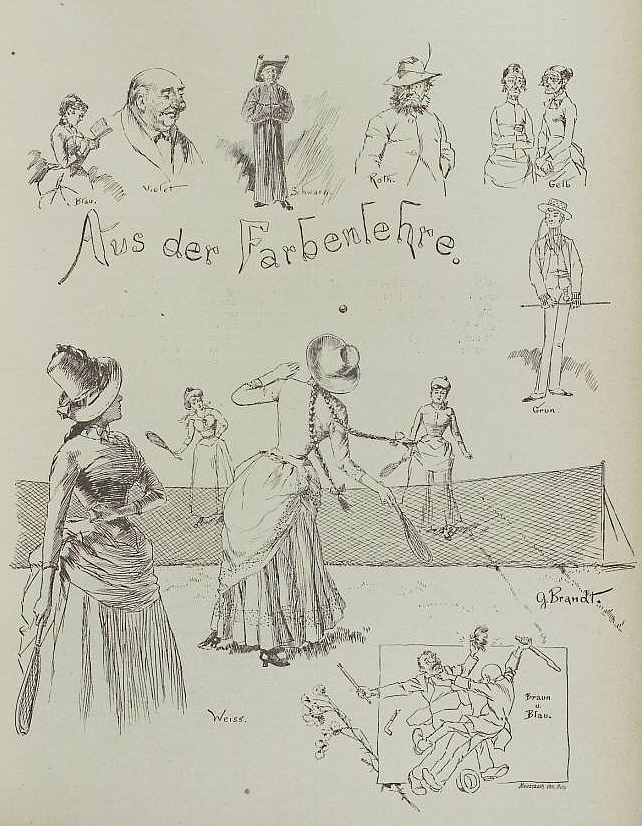 Blau.
Violet
Schwarz.
Roth.
Gelb
Aus der Farbenlehre.
Grün
G. Brandt.
Weiss.
Braun
u.
Blau.